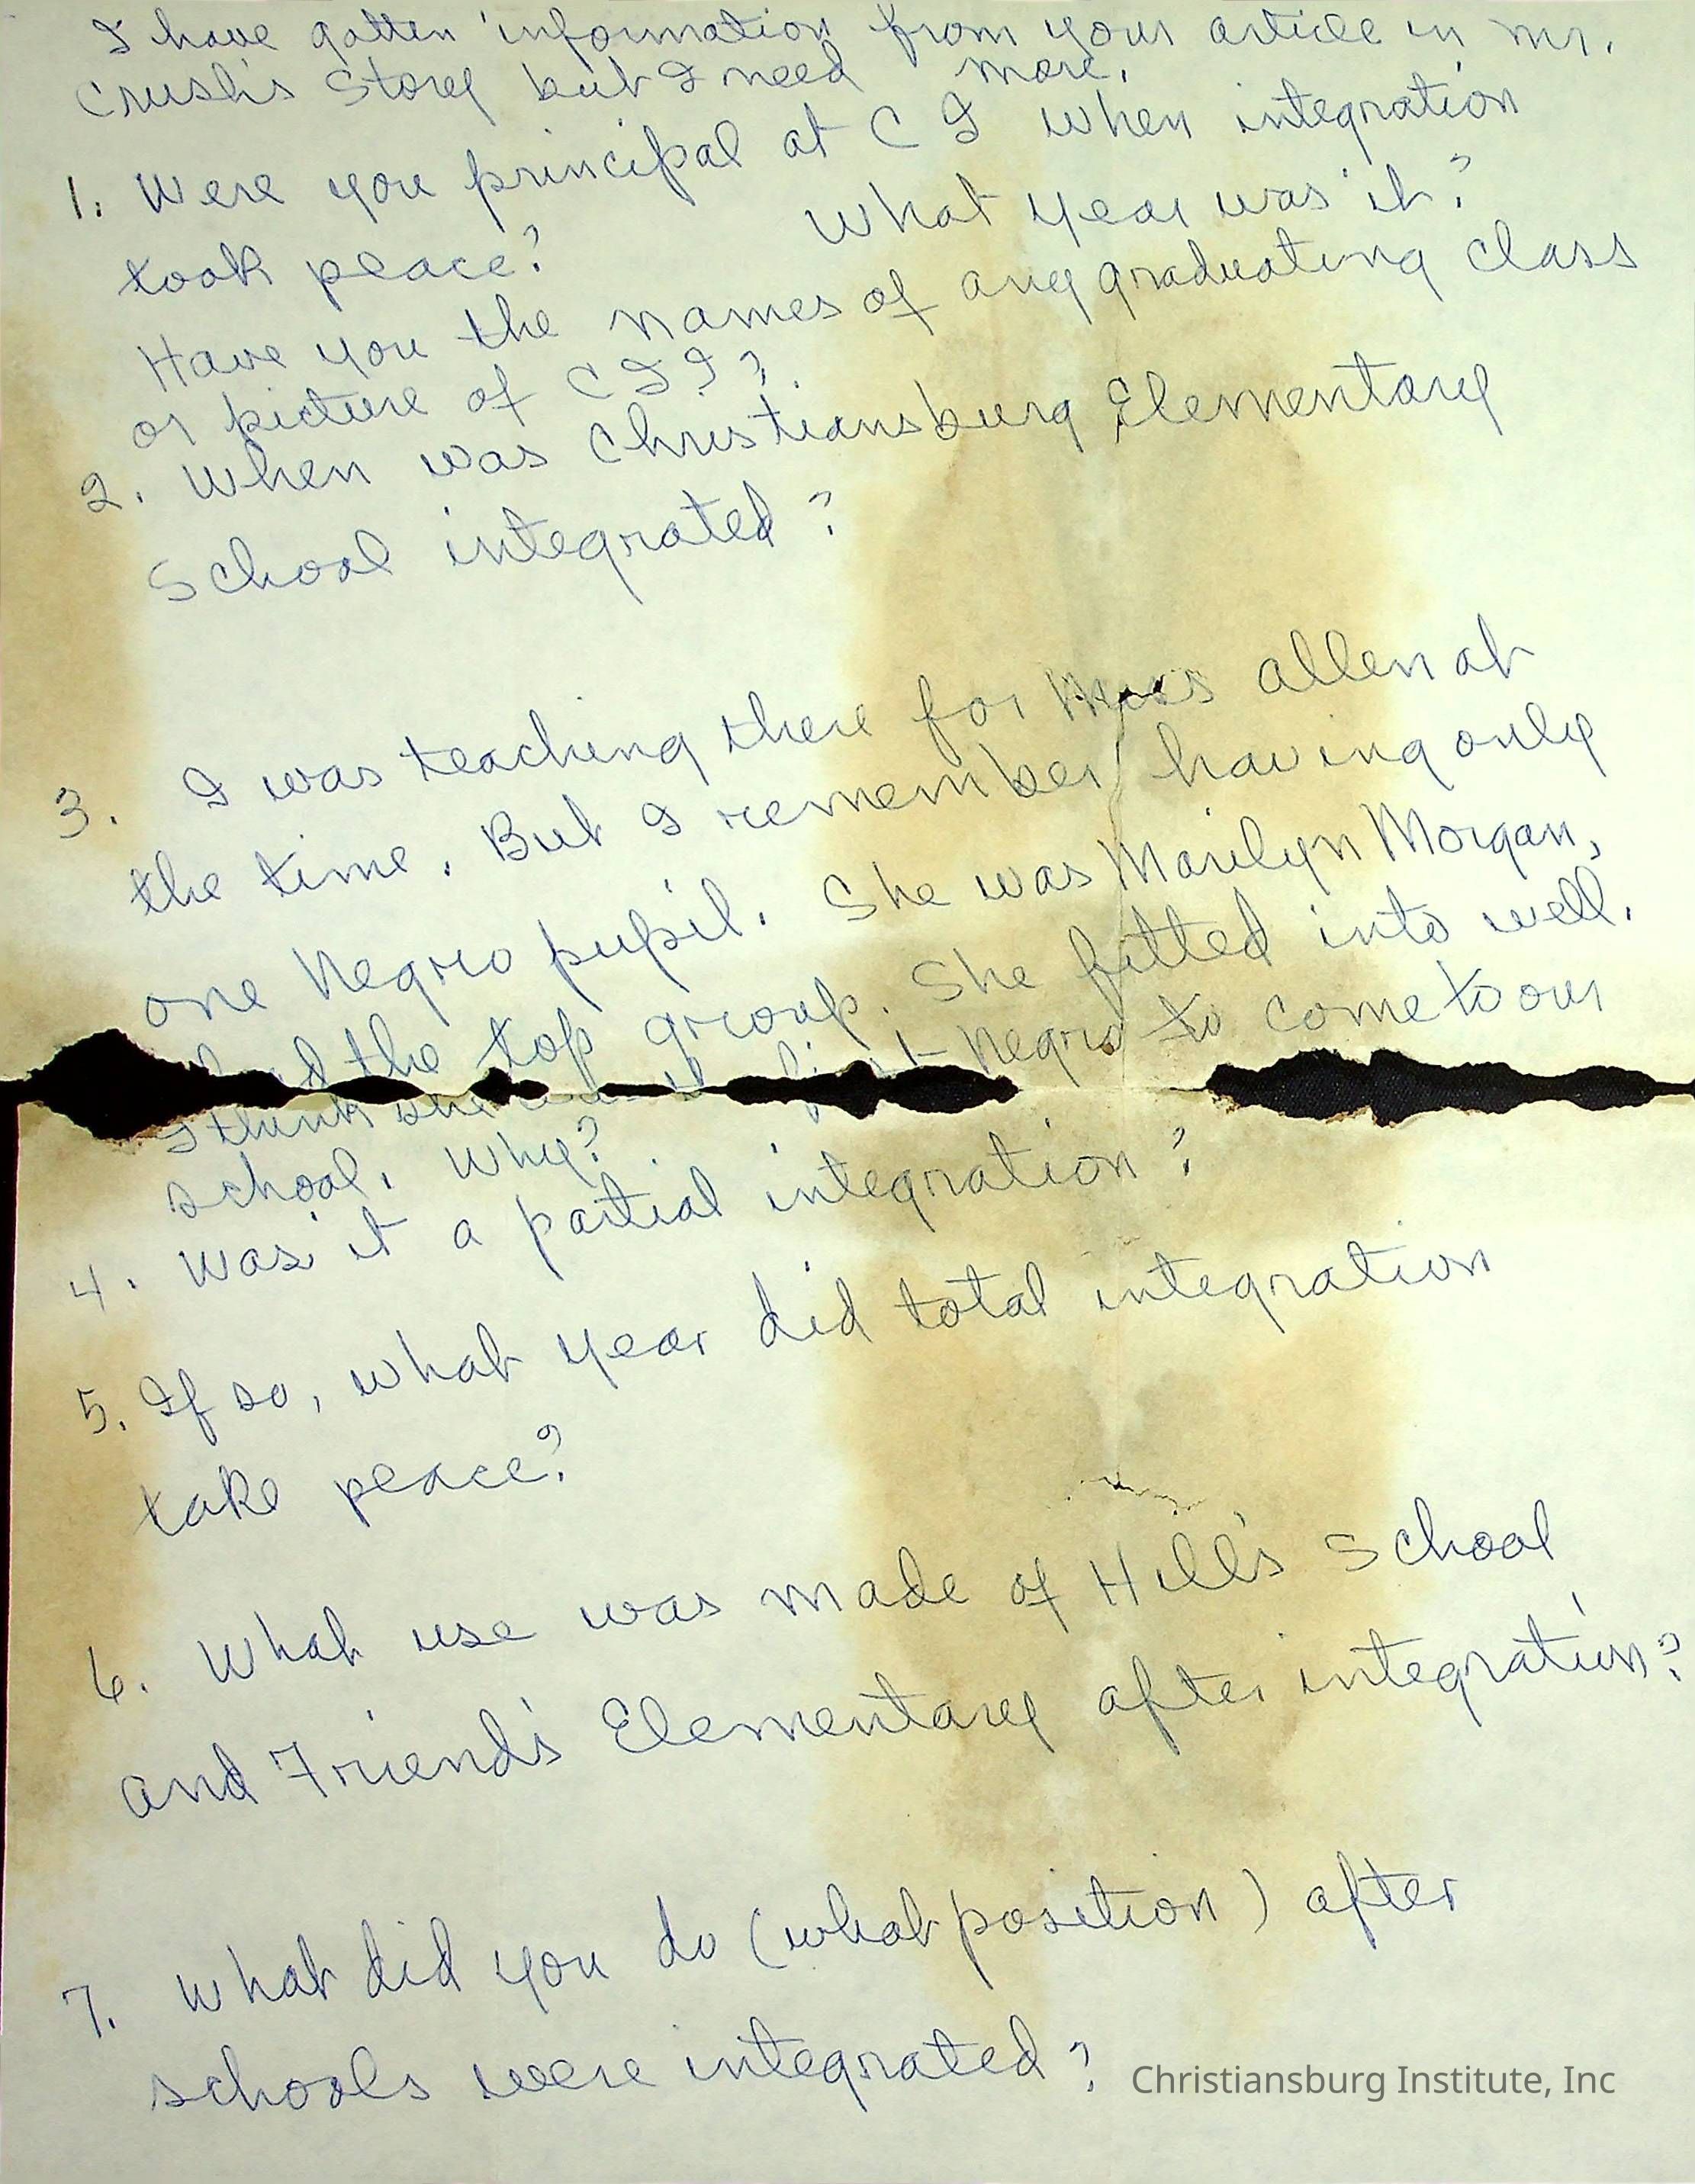 I have gotten information from your article in Mr.
Crush's Story but I need more.
1. Were you principal at C I when integration
took peace? What year was it?
Have you the names of any graduating class
or picture of C I ? ?
2. When was Christiansburg Elementary
School integrated?
3. I was teaching there for Allen at
the time. But I remember having only
one Negro pupil. She was Marilyn Morgan,
the top group. She fitted into well.
I think she Negro to come to our
school. Why?
4. Was it a partial integration?
5. If so, what year did total integration
take peace?
6. What use was made of Hill's School
and Friend's Elementary after integration?
7. What did you do (what position) after
schools were integrated?
Christiansburg Institute, Inc